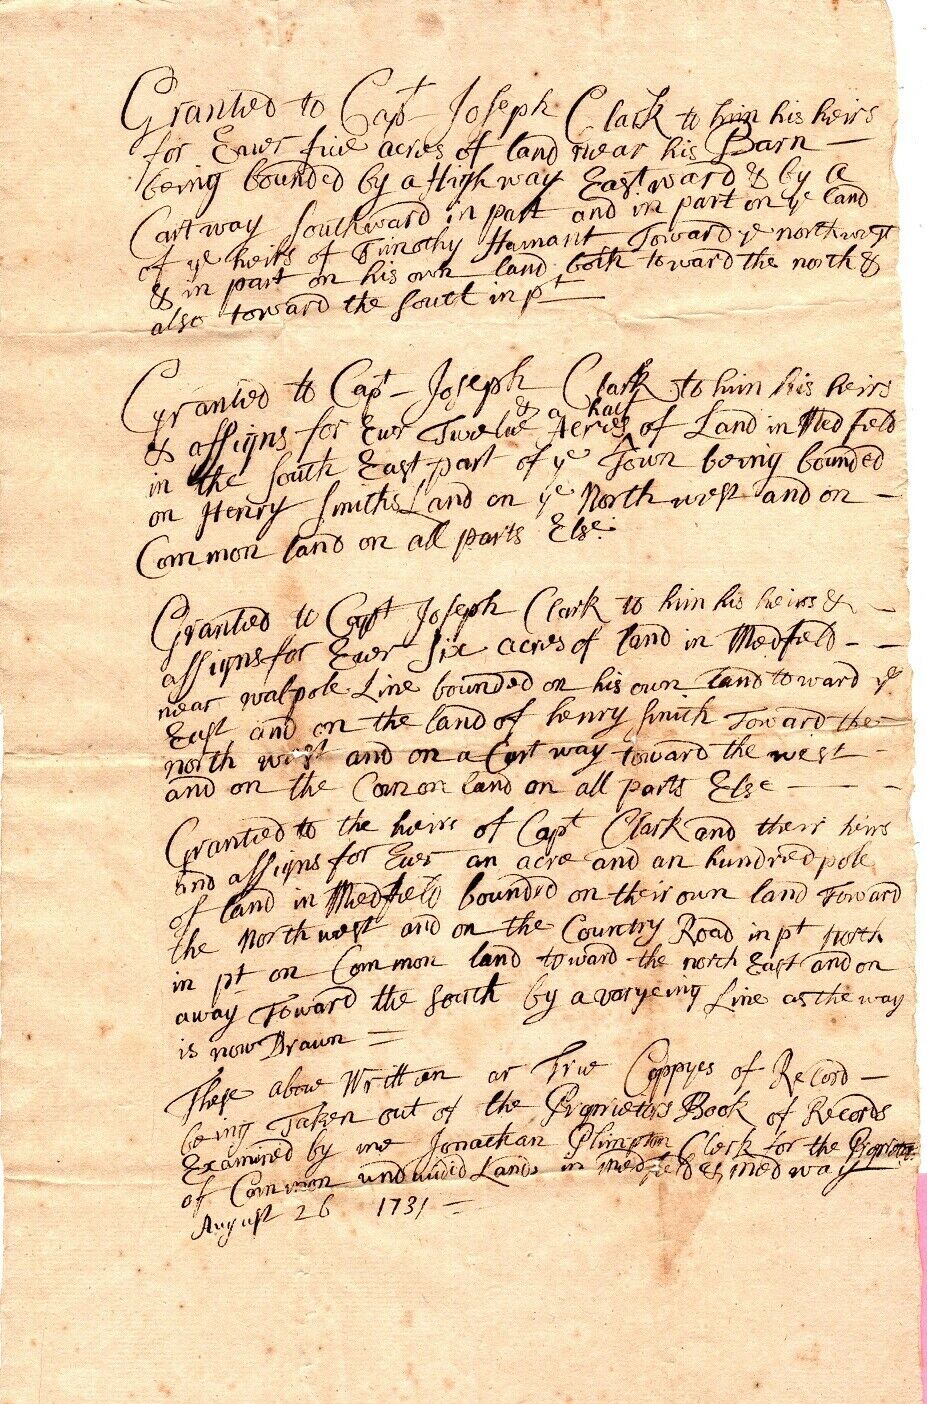 Granted to Capt Joseph Clark to him his heirs
for Ever five acres of land near his Barn —
being bounded by a High way Eastward & by a
Cart way Southward in part and in part on ye land
of ye heirs of Timothy Hamant Toward ye northwest
& in part on his own land both toward the north &
also toward the South in pt —
Granted to Capt Joseph Clark to him his heirs
& a half
& assigns for Ever Twelve Acres of Land in Medfield
in the South East part of ye Town being bounded
on Henry Smiths Land on ye North west and on —
Common land on all parts Else:
Granted to Capt Joseph Clark to him his heirs & —
assigns for Ever Six acres of land in Medfield — —
near walpole Line bounded on his own land toward ye
East and on the land of henry Smith Toward the
north west and on a Cart way toward the west —
and on the Comon land on all parts Else — — —
Granted to the heirs of Capt Clark and their heirs
and assigns for Ever an acre and an hundred pole
of land in Medfield bounded on their own land Toward
the North west and on the Country Road in pt North
in pt on Common land toward the north East and on
away Toward the South by a varyeing Line as the way
is now Drawn =
These above Written ar True Coppyes of Record —
being Taken out of the Proprietors Book of Records
Examined by me Jonathan Plimpton Clerk for the Proprietrs
of Common undivided Lands in medfield & medway
August 26 1731 =